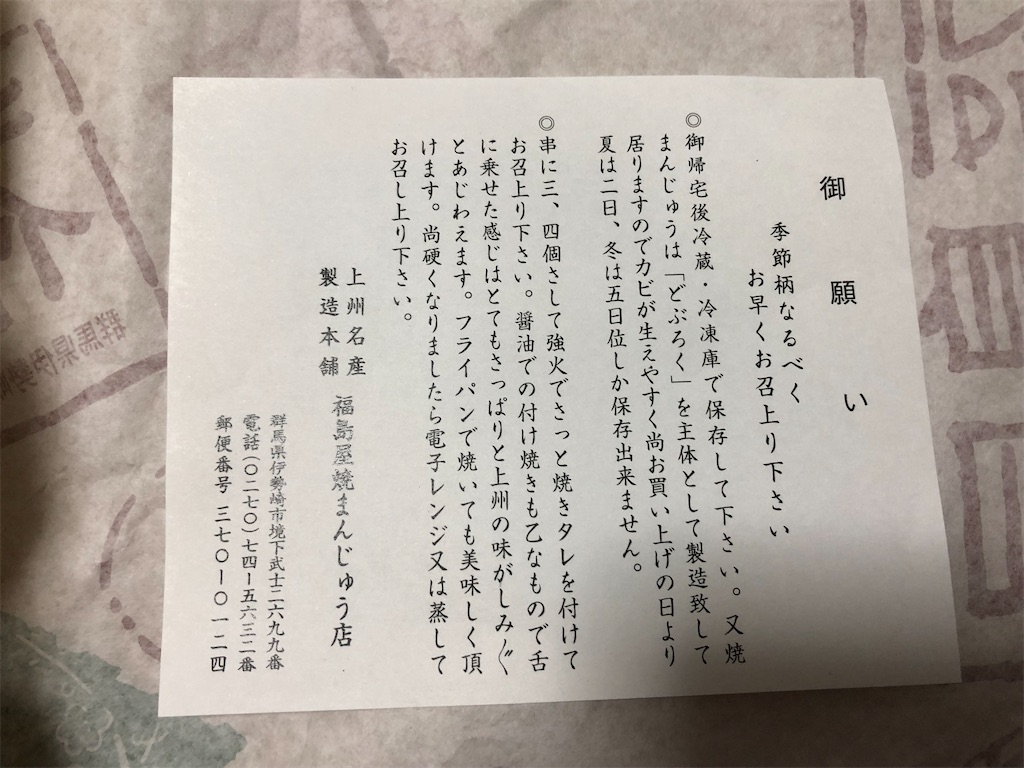 御願い
季節柄なるべく
お早くお召上り下さい
◎御帰宅後冷蔵・冷凍庫で保存して下さい。又焼
まんじゅうは「どぶろく」を主体として製造致して
居りますのでカビが生えやすく尚お買い上げの日より
夏は二日、冬は五日位しか保存出来ません。
◎串に三、四個さして強火でさっと焼きタレを付けて
お召上り下さい。醤油での付け焼きも乙なもので舌
に乗せた感じはとてもさっぱりと上州の味がしみ〴〵
とあじわえます。フライパンで焼いても美味しく頂
けます。尚硬くなりましたら電子レンジ又は蒸して
お召し上り下さい。
上州名産
製造本舗
福島屋焼まんじゅう店
群馬県伊勢崎市境下武士二六九九番
電話(〇二七〇)七四ー五六三二番
郵便番号 三七〇ー〇一二四
群馬県伊勢